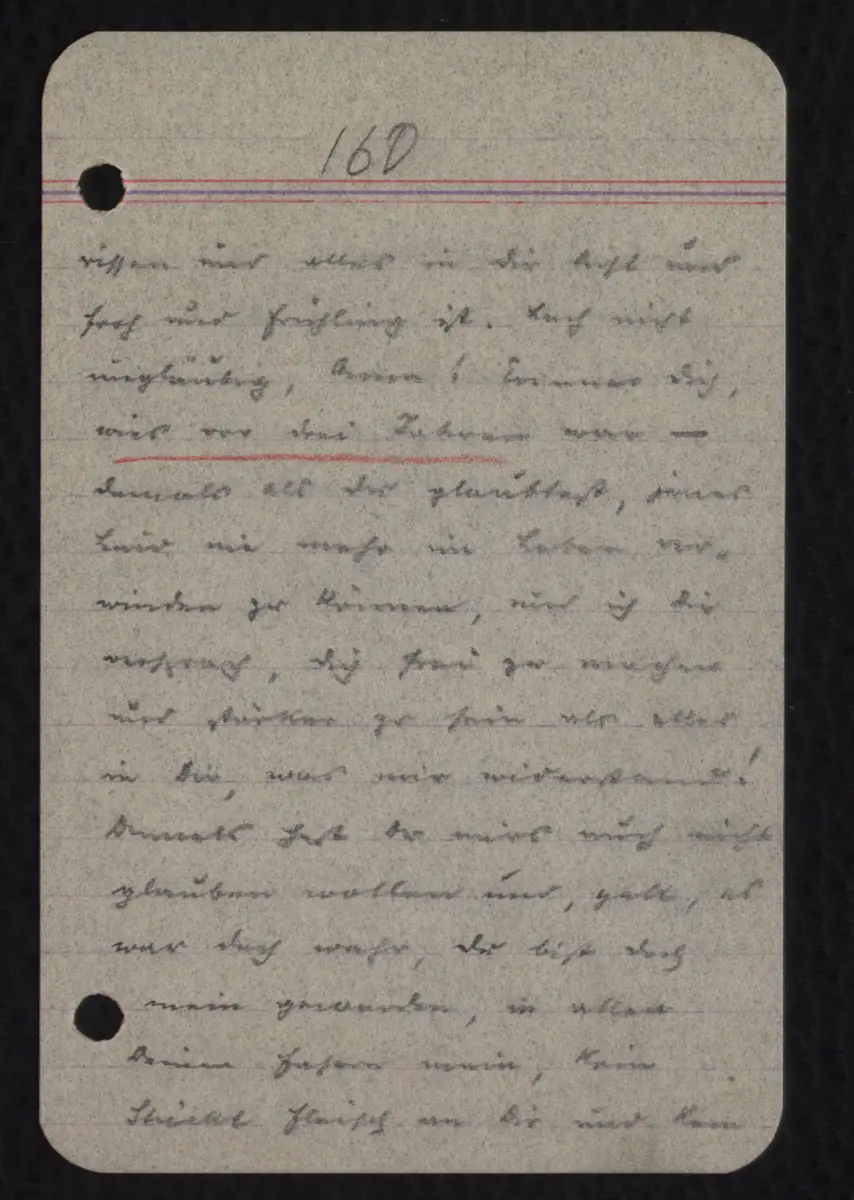 160
rissen und alles in dir licht und
froh und Frühling ist. Lach nicht
ungläubig, Anna! Erinner dich,
wies vor drei Jahren war —
damals als du glaubtest, jenes
Leid nie mehr im Leben ver-
winden zu können, und ich dir
versprach, dich frei zu machen
und stärker zu sein als alles
in dir, was mir widerstand!
Damals hast du mirs auch nicht
glauben wollen und, gelt, es
war doch wahr, du bist doch
mein geworden, in allen
Deinen Fasern mein, kein
Stückl Fleisch an dir und kein